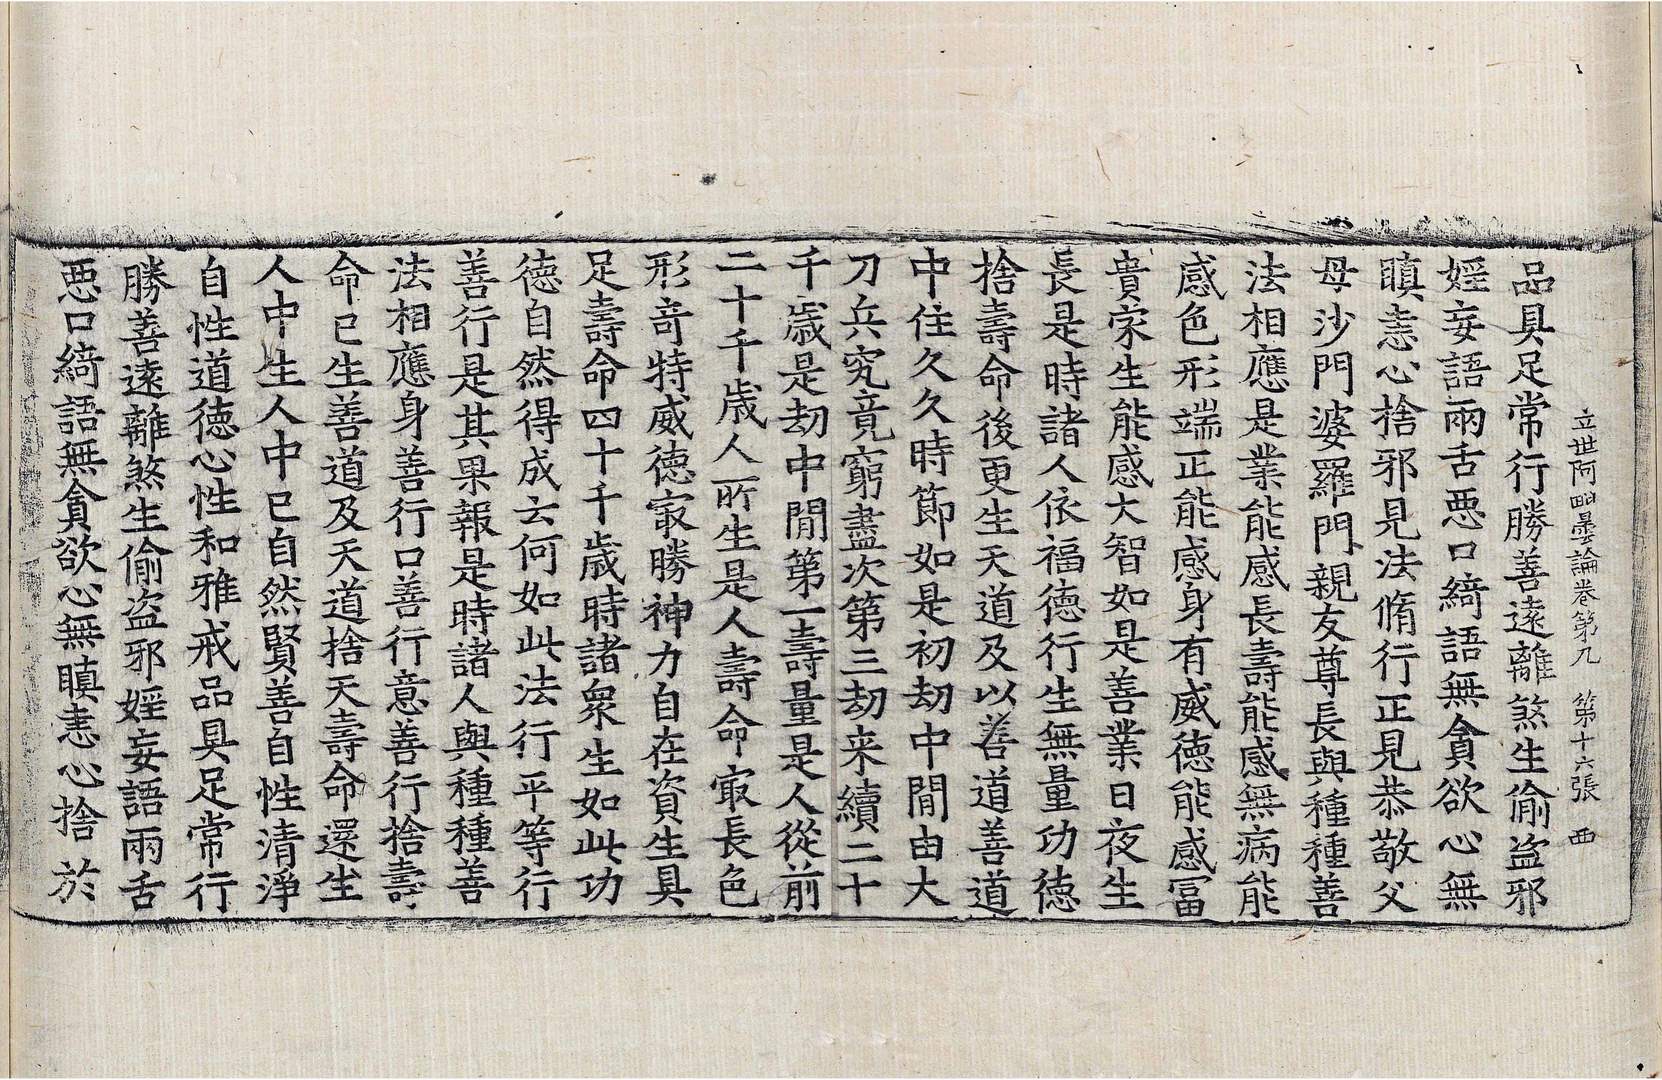 立世阿毗曇論卷第九　第十六張　西
品具足常行勝善遠離煞生偷盜邪
婬妄語兩舌惡口綺語無貪欲心無
瞋恚心捨邪見法脩行正見恭敬父
母沙門婆羅門親友尊長與種種善
法相應是業能感長壽能感無病能
感色形端正能感身有威德能感富
貴家生能感大智如是善業日夜生
長是時諸人依福德行生無量功德
捨壽命後更生天道及以善道善道
中住久久時節如是初劫中間由大
刀兵究竟窮盡次第三劫来續二十
千歲是劫中間第一壽量是人從前
二十千歲人所生是人壽命㝡長色
形竒特威德㝡勝神力自在資生具
足壽命四十千歲時諸衆生如此功
德自然得成云何如此法行平等行
善行是其果報是時諸人與種種善
法相應身善行口善行意善行捨壽
命已生善道及天道捨天壽命還生
人中生人中已自然賢善自性清淨
自性道德心性和雅戒品具足常行
勝善遠離煞生偷盜邪婬妄語兩舌
惡口綺語無貪欲心無瞋恚心捨於